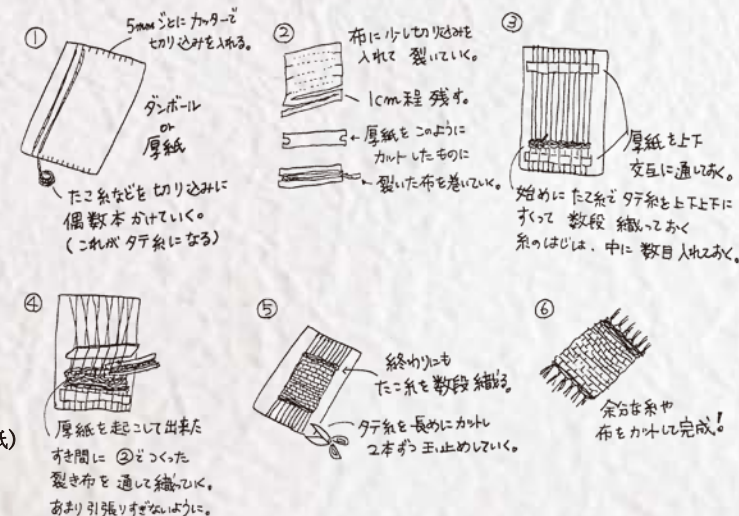 ①
5mmごとにカッターで
切り込みを入れる。
ダンボール
or
厚紙
たこ糸などを切り込みに
偶数本かけていく。
(これがタテ糸になる)
②
布に少し切り込みを
入れて 裂いていく。
1cm程 残す。
厚紙をこのように
カットしたものに
裂いた布を巻いていく。
③
厚紙を上下
交互に通しておく。
始めに たこ糸で タテ糸を上下上下に
すくって 数段 織っておく
糸のはじは、中に 数目 入れておく。
④
厚紙を起こして出来た
すき間に ②でつくった
裂き布を 通して織っていく。
あまり引張りすぎないように。
紙)
⑤
終わりにも
たこ糸を数段織る。
タテ糸を長めにカットし
2本ずつ 玉止めしていく。
⑥
余分な糸や
布をカットして完成!